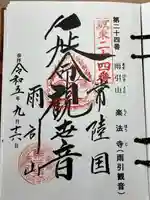 第二十四番 雨引山 楽法寺(雨引観音)
坂東二十四番
常陸国
延命観世音
雨引山
奉拝
令和五年九月十六日